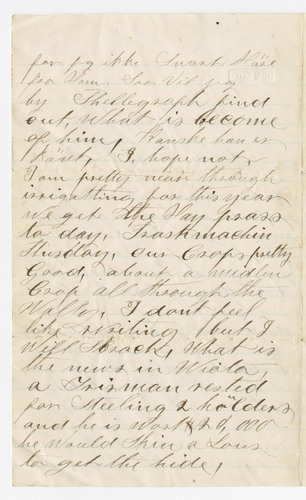 for jg ikke Snart Høre
fra Ham. Saa Vil jeg
by Thellegraph find
out, What is become
of him, Kanske han er
I hope not,
I am pretty near through
irrigatting for this year
We get the Hay
to day, Trashmachin
Thusday, our Crops pretty
Good, about a midlin
Crop all through the
Vally, I dont feel
like writing but I
Will What is
the news in Wiota,
a Irisman rested
for Steeling 2
and he is Wort 20,000
he Would Skin a Lous
to get the hide,